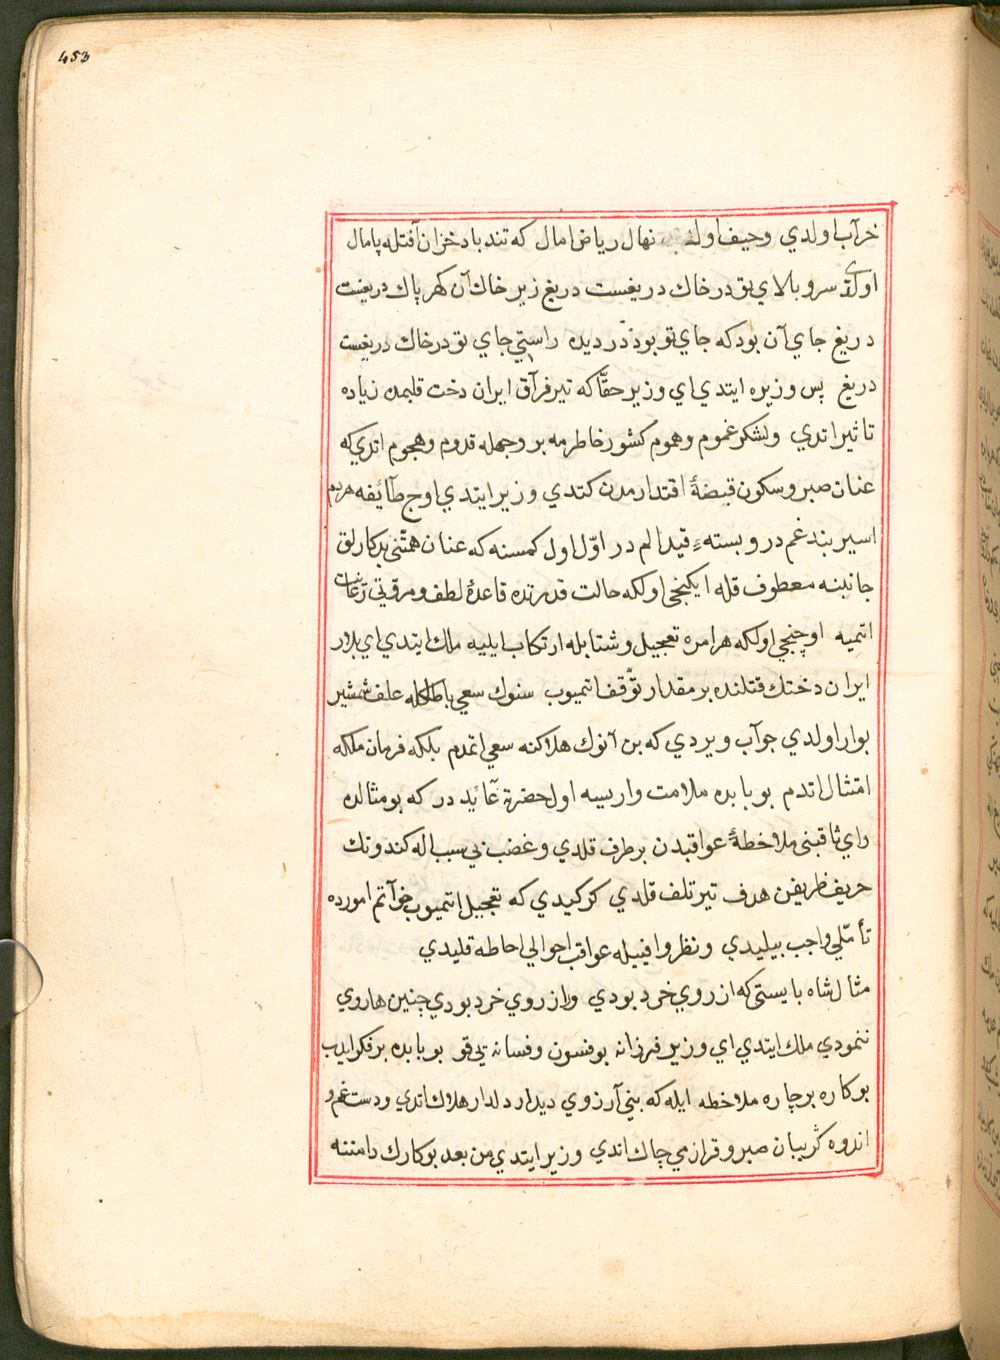 453
خرآب اولدي وحيف اولـ نهال رياض امال كه تند باد خزان آفتله پامال
اولدي سرو بالاي تو در خاك دريغست دريغ زير خاك آن كهر پاك دريغست
دريغ جاي آن بود كه جاي تو بود در ديده راستي جاي تو در خاك دريغست
دريغ پس وزيره ايتدي اي وزير حقّا كه تير فرآق ايران دخت قلبمه زياده
تاثير اتدي ولشكر غموم وهموم كشور خاطرمه بر وجهله قدوم وهجوم اتدي كه
عنان صبر وسكون قبضهٔ اقتدارمدن كتدي وزير ايتدي اوج طآئفه هردم
اسير بند غم در وبستهء قيد الم در اوّل اول كمسنه كه عنان همّتنى بدكارلق
جانبنه معطوف قله ايكنجى اولكه حالت قدرتده قاعدهٔ لطف ومروّتي رعايت
اتميه اوچنجي اولكه هر امره تعجيل وشتابله ارتكاب ايليه ملك ايتدي اي بلار
ايران دختك قتلنده بر مقدار توّقف اتميوب سنوك سعي باطلكله علف شمشير
بوار اولدي جوآب ويردي كه بن آنوك هلاكنه سعي اتمدم بلكه فرمان ملكه
امتثال اتدم بو بابده ملامت واريسه اول حضرته عآئد در كه بو مثاللده
راي ثاقبنى ملاحظهٔ عواقبدن برطرف قلدي وغضب بي سبب اله كندونك
حريف ظريفن هدف تير تلف قلدي كركيدي كه تعجيل اتميوب خوآتم امورده
تأمّلي واجب بيليدي ونظر وافييله عواقب احوالي احاطه قليدي
مثال شاه بايستى كه از روي خرد بودي وراز روي خرد بودي چنين ها روي
ننمودي ملك ايتدي اي وزير فرزانه بو فسون وفسانه يي قو بو بابده بر فكر ايدب
بو كاره بر چاره ملاحظه ايله كه بني آرزوي ديدار دلدار هلاك اتدي ودست غم و
اندوه كريبان صبر وقرارمي چاك اتدي وزير ايتدي من بعد بو كارك دامننه